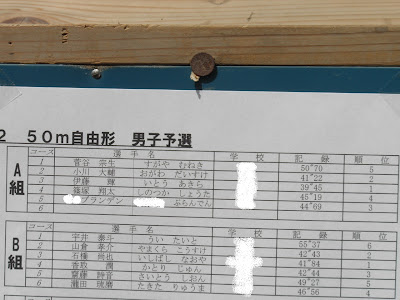 2 50m自由形 男子予選
A組
コース 選手名 学校 記録 順位
1 菅谷 宗生 すがや むねき 50"70 5
2 小川 大輔 おがわ だいすけ 41"22 2
3 伊藤 輝 いとう あきら 39"45 1
4 篠塚 翔太 しのつか しょうた 45"19 4
5 ブランデン ぶらんでん 44"69 3
6
B組
コース 選手名 学校 記録 順位
1 宇井 泰斗 うい たいと 55"37 6
2 山倉 孝介 やまくら こうすけ 42"43 2
3 石橋 尚也 いしばし なおや 41"84 1
4 香取 かとり じゅん 42"44 3
5 齋藤 詩音 さいとう しおん 49"27 5
6 瀧田 琉磨 たきた りゅうま 46"56